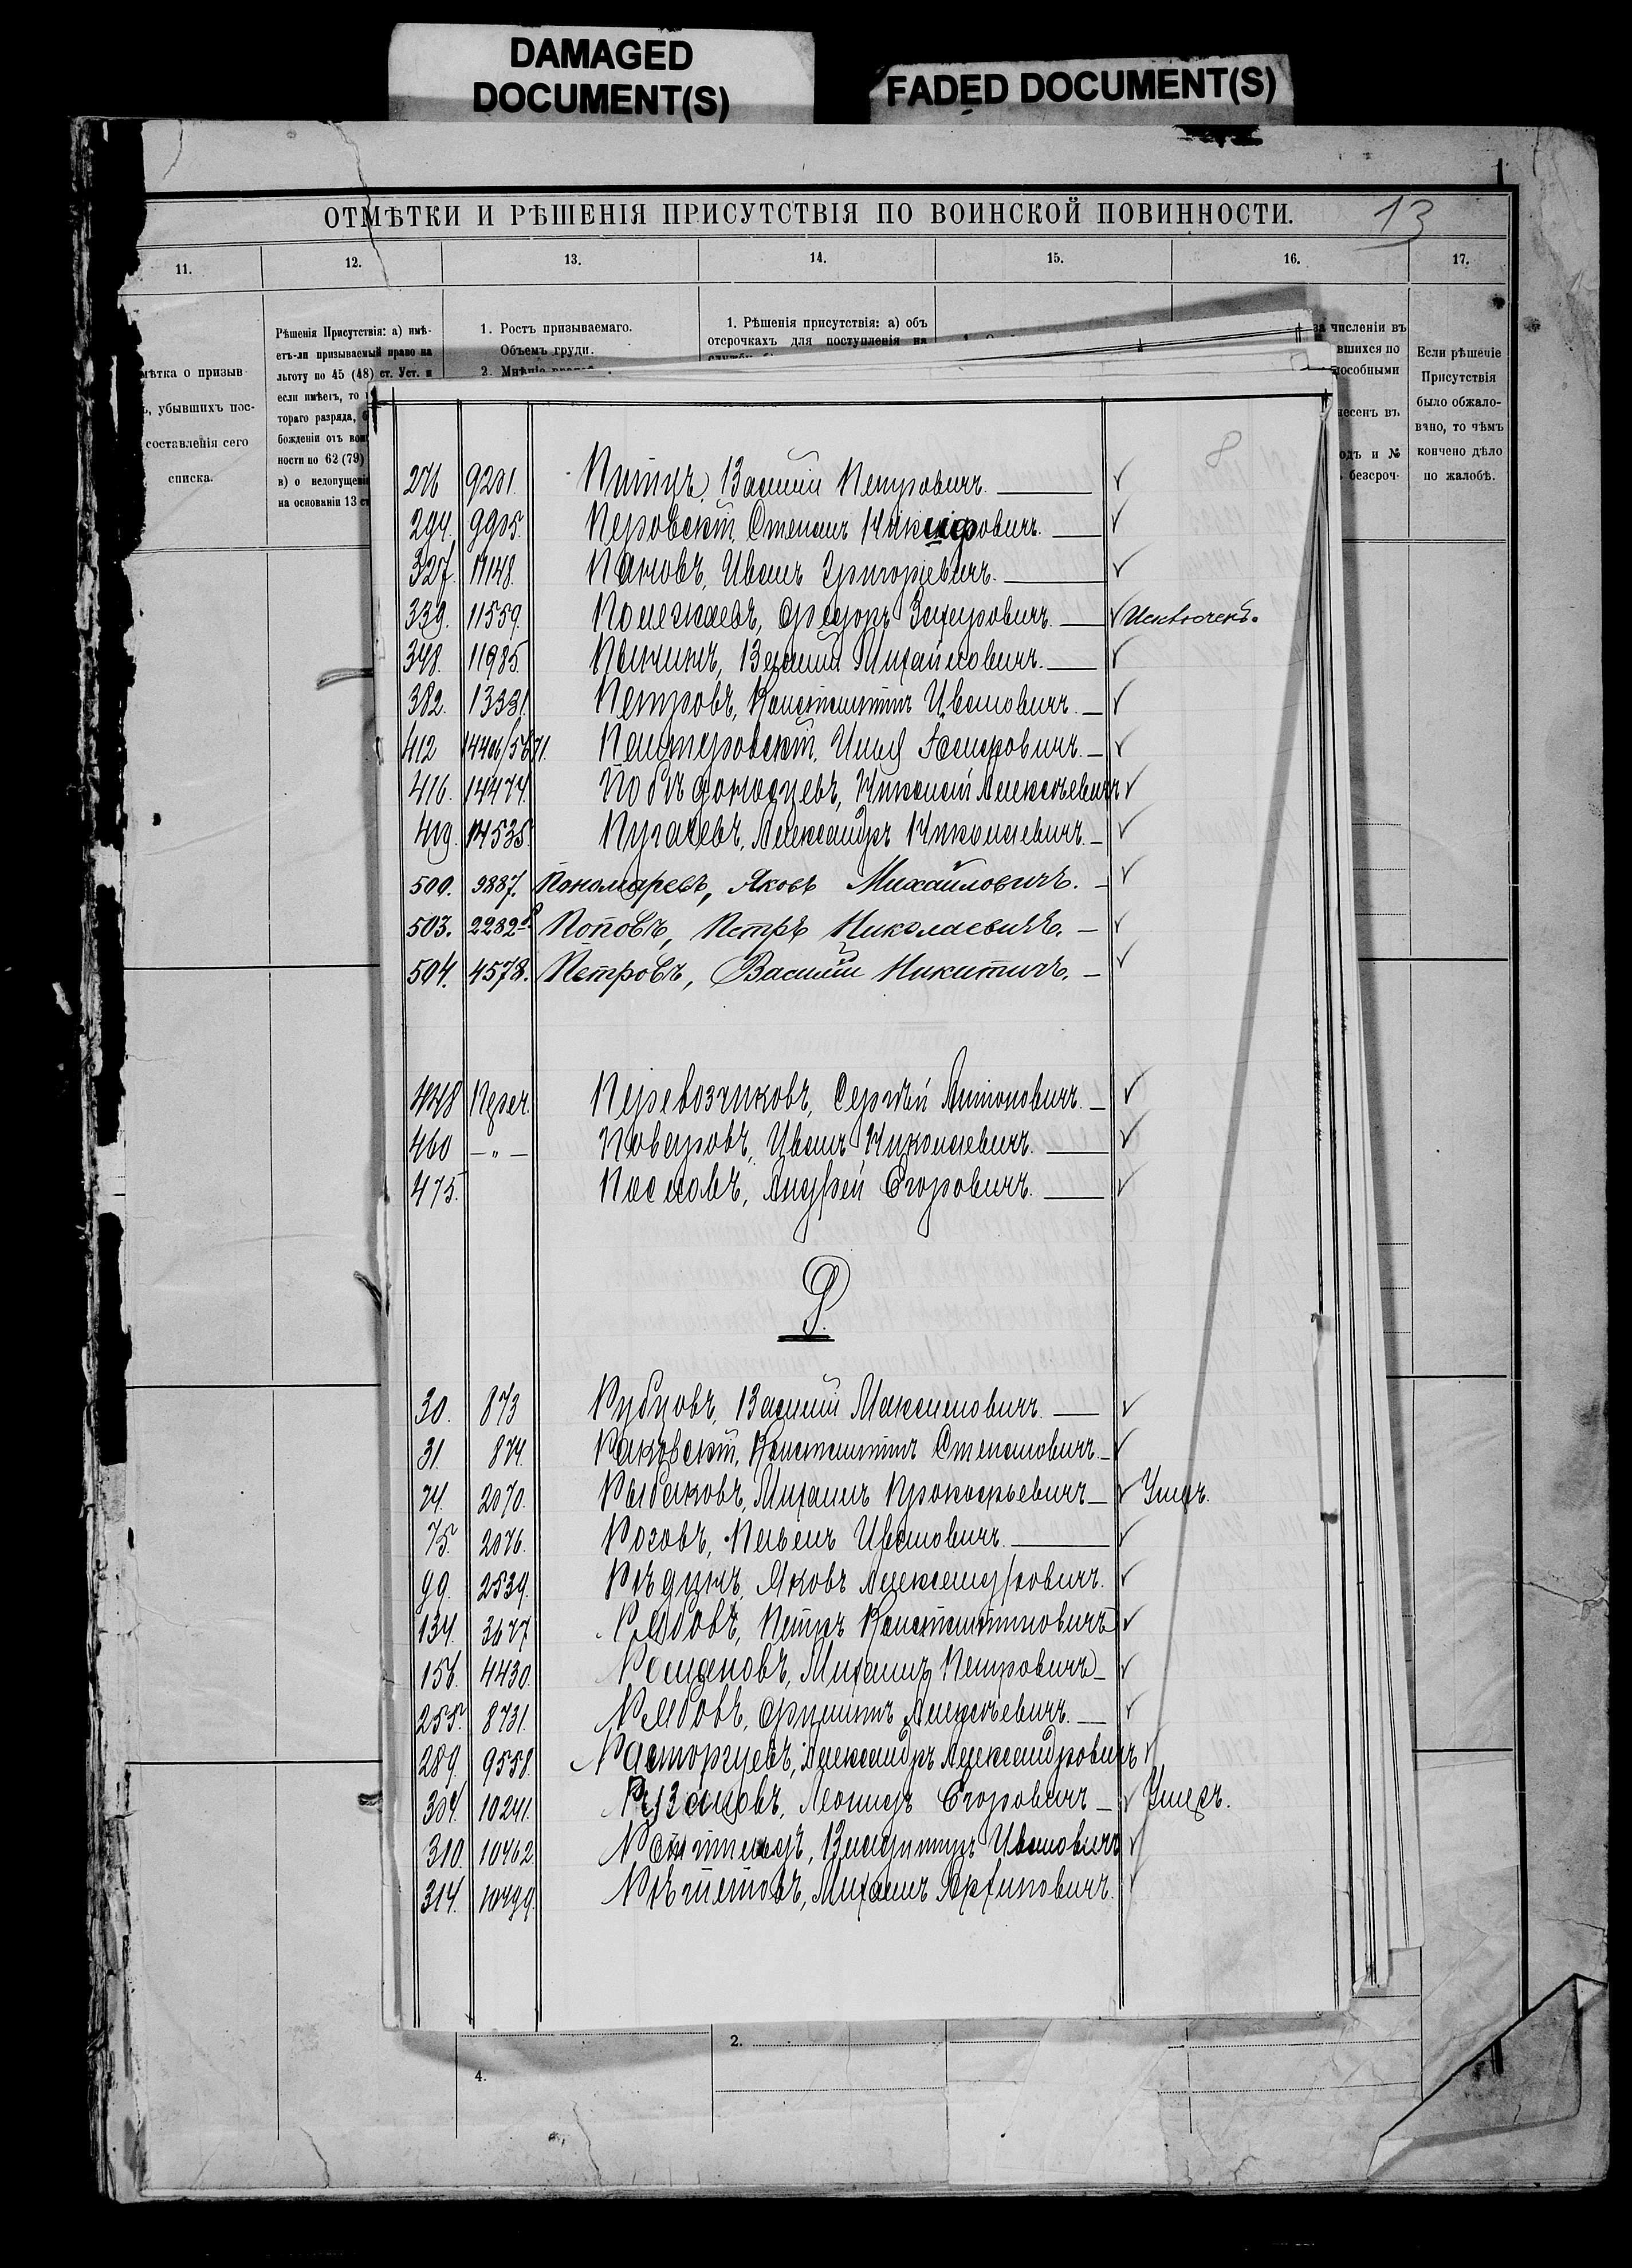 DAMAGED
DOCUMENT(S)
FADED DOCUMENT(S)
ОТМѢТКИ И РѢШЕНІЯ ПРИСУТСТВІЯ ПО ВОИНСКОЙ ПОВИННОСТИ.
13
11. 12. 13. 14. 15. 16. 17.
мѣтка о призыв
ъ, убывшихъ пос-
составленія сего
списка.
Рѣшенія Присутствія: а) имѣ-
етъ-ли призываемый право на
льготу по 45 (48) ст. Уст. и
если имѣетъ, то
тораго разряда,
божденіи отъ вои
ности по 62 (79)
в) о недопущені
на основаніи 13 ст
1. Ростъ призываемаго.
Объемъ груди.
2. Мнѣніе
1. Рѣшенія присутствія: а) объ
отсрочкахъ для поступленія на
за численіи въ
вшихся по
пособными
несенъ въ
одъ и №
безсроч-
Если рѣшеніе
Присутствія
было обжало-
вано, то чѣмъ
кончено дѣло
по жалобѣ.
8
276 9201. Василій Петровичъ. ✓
294. 9905. Перовскій, Степанъ ✓
327. 11148. Пановъ, Иванъ Григорьевичъ. ✓
339. 11559. Полежаевъ, Федоръ Захаровичъ. ✓ Исключенъ.
348. 11985. Василій Михайловичъ. ✓
382. 13331. Петровъ, Константинъ Ивановичъ. ✓
412 Илья ✓
416. 14474. Побѣдоносцевъ, Николай Алексѣевичъ ✓
419. 14535. Пугачевъ, Александръ Николаевичъ. ✓
500. 9887. Пономаревъ, Яковъ Михайловичъ. ✓
503. 2282 Поповъ, Петръ Николаевичъ. ✓
504. 4578. Петровъ, Василій Никитичъ. ✓
448 Переч. Перевозчиковъ, Сергѣй Антоновичъ. ✓
460 —"— Поваровъ, Иванъ Николаевичъ. ✓
475. Андрей Егоровичъ. ✓
Р.
30. 873 Рубцовъ, Василій Максимовичъ. ✓
31. 874. Раковскій, Константинъ Степановичъ. ✓
74. 2070. Рыбаковъ, Михаилъ Прокофьевичъ ✓ Умеръ.
75. 2076. Павелъ Ивановичъ. ✓
99. 2539. Яковъ Александровичъ. ✓
134. 3677 Рябовъ, Петръ Константиновичъ ✓
156. 4430. Романовъ, Михаилъ Петровичъ ✓
255. 8731. Рябовъ, Филиппъ Алексѣевичъ. ✓
289. 9558. Расторгуевъ, Александръ Александровичъ ✓
304. 10241. Рязановъ, Леонидъ Егоровичъ ✓ Умеръ.
310. 10462. Владиміръ Ивановичъ ✓
314. 10499. Рѣшетовъ, Михаилъ Архиповичъ. ✓
4.
2.